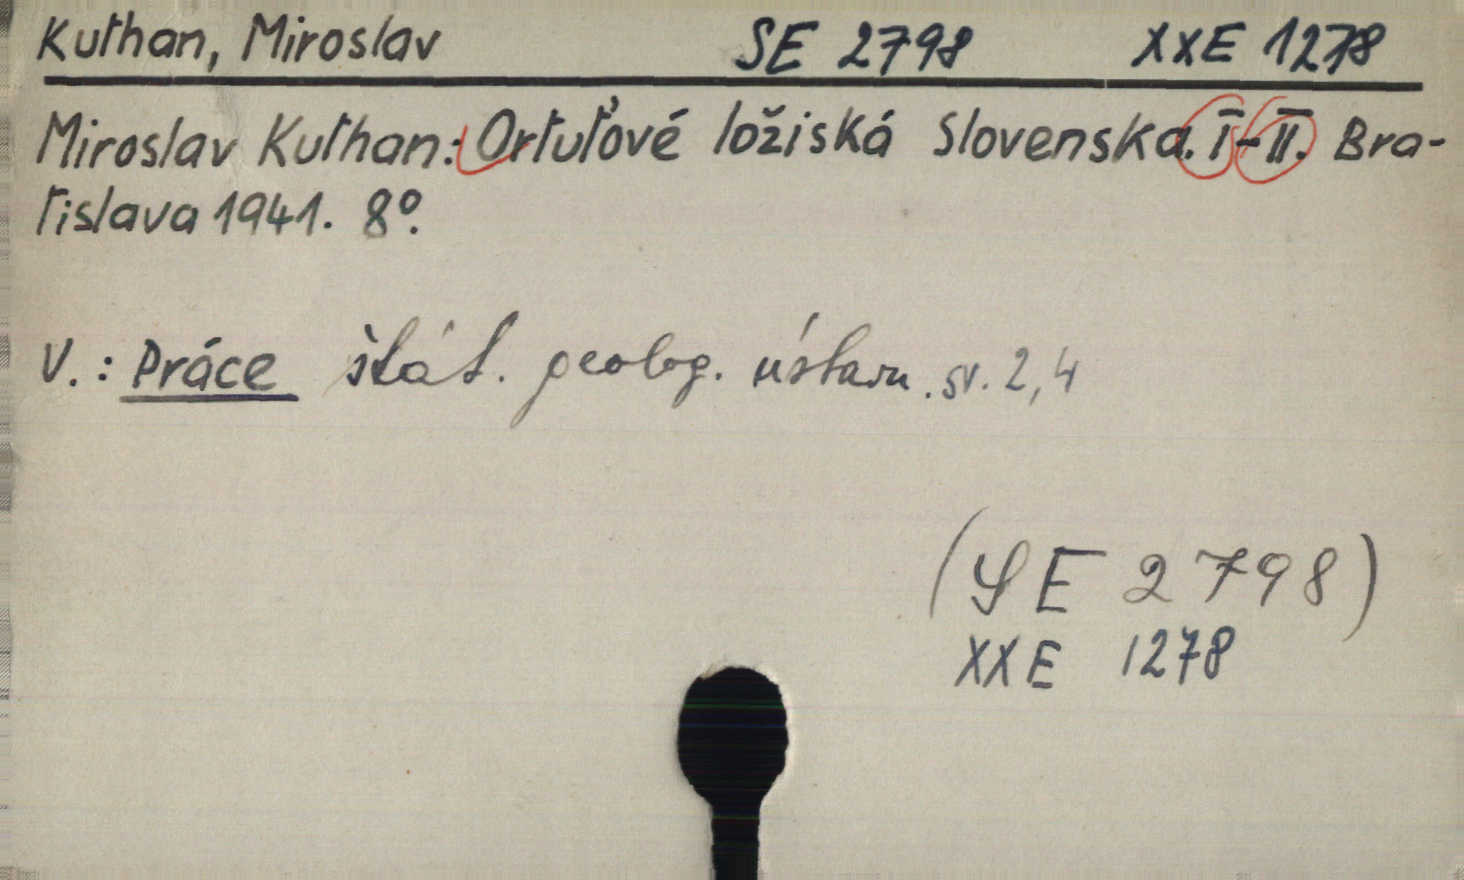 Kuthan, Miroslav SE 2798 XXE 1278
Miroslav Kuthan: Ortuťové ložiská Slovenska. I-II. Bra-
tislava 1941. 8°.
V.: Práce štát. geolog. ústavu. sv. 2, 4
(SE 2798)
XXE 1278